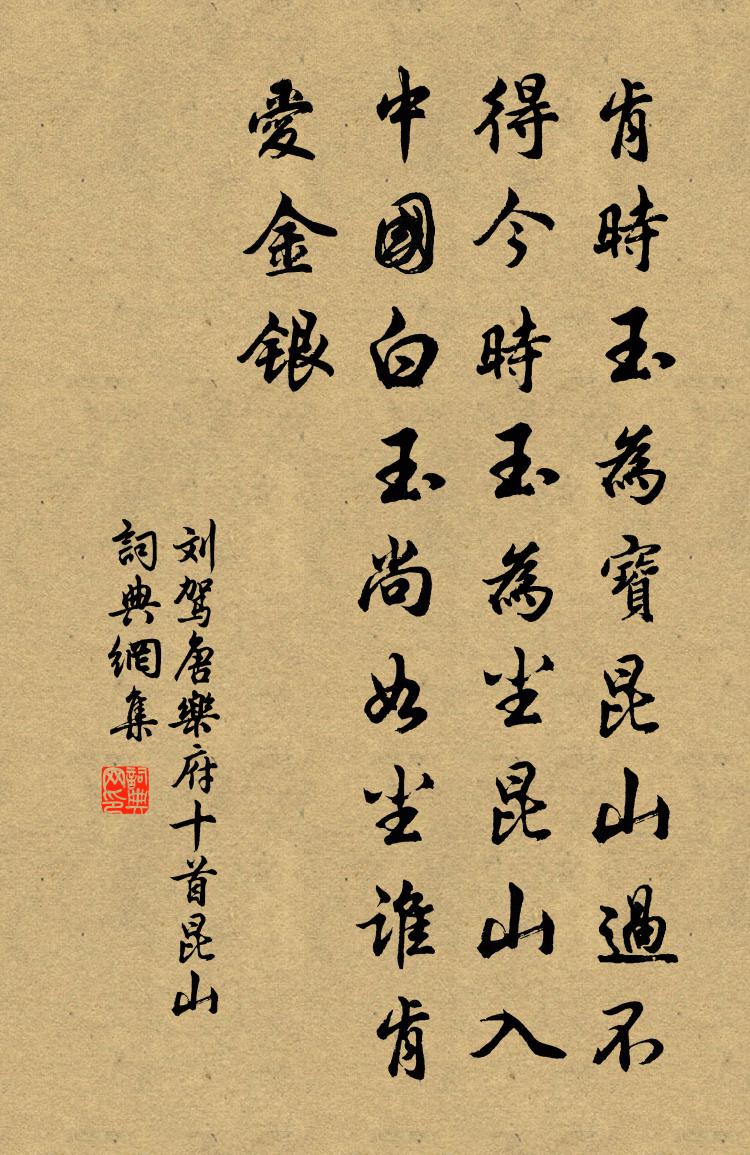 肯時玉為寶昆山過不
得今時玉為尘昆山入
中國白玉尚如尘誰肯
愛金銀
刘驾唐樂府十首昆山
詞典網集
詞典网印